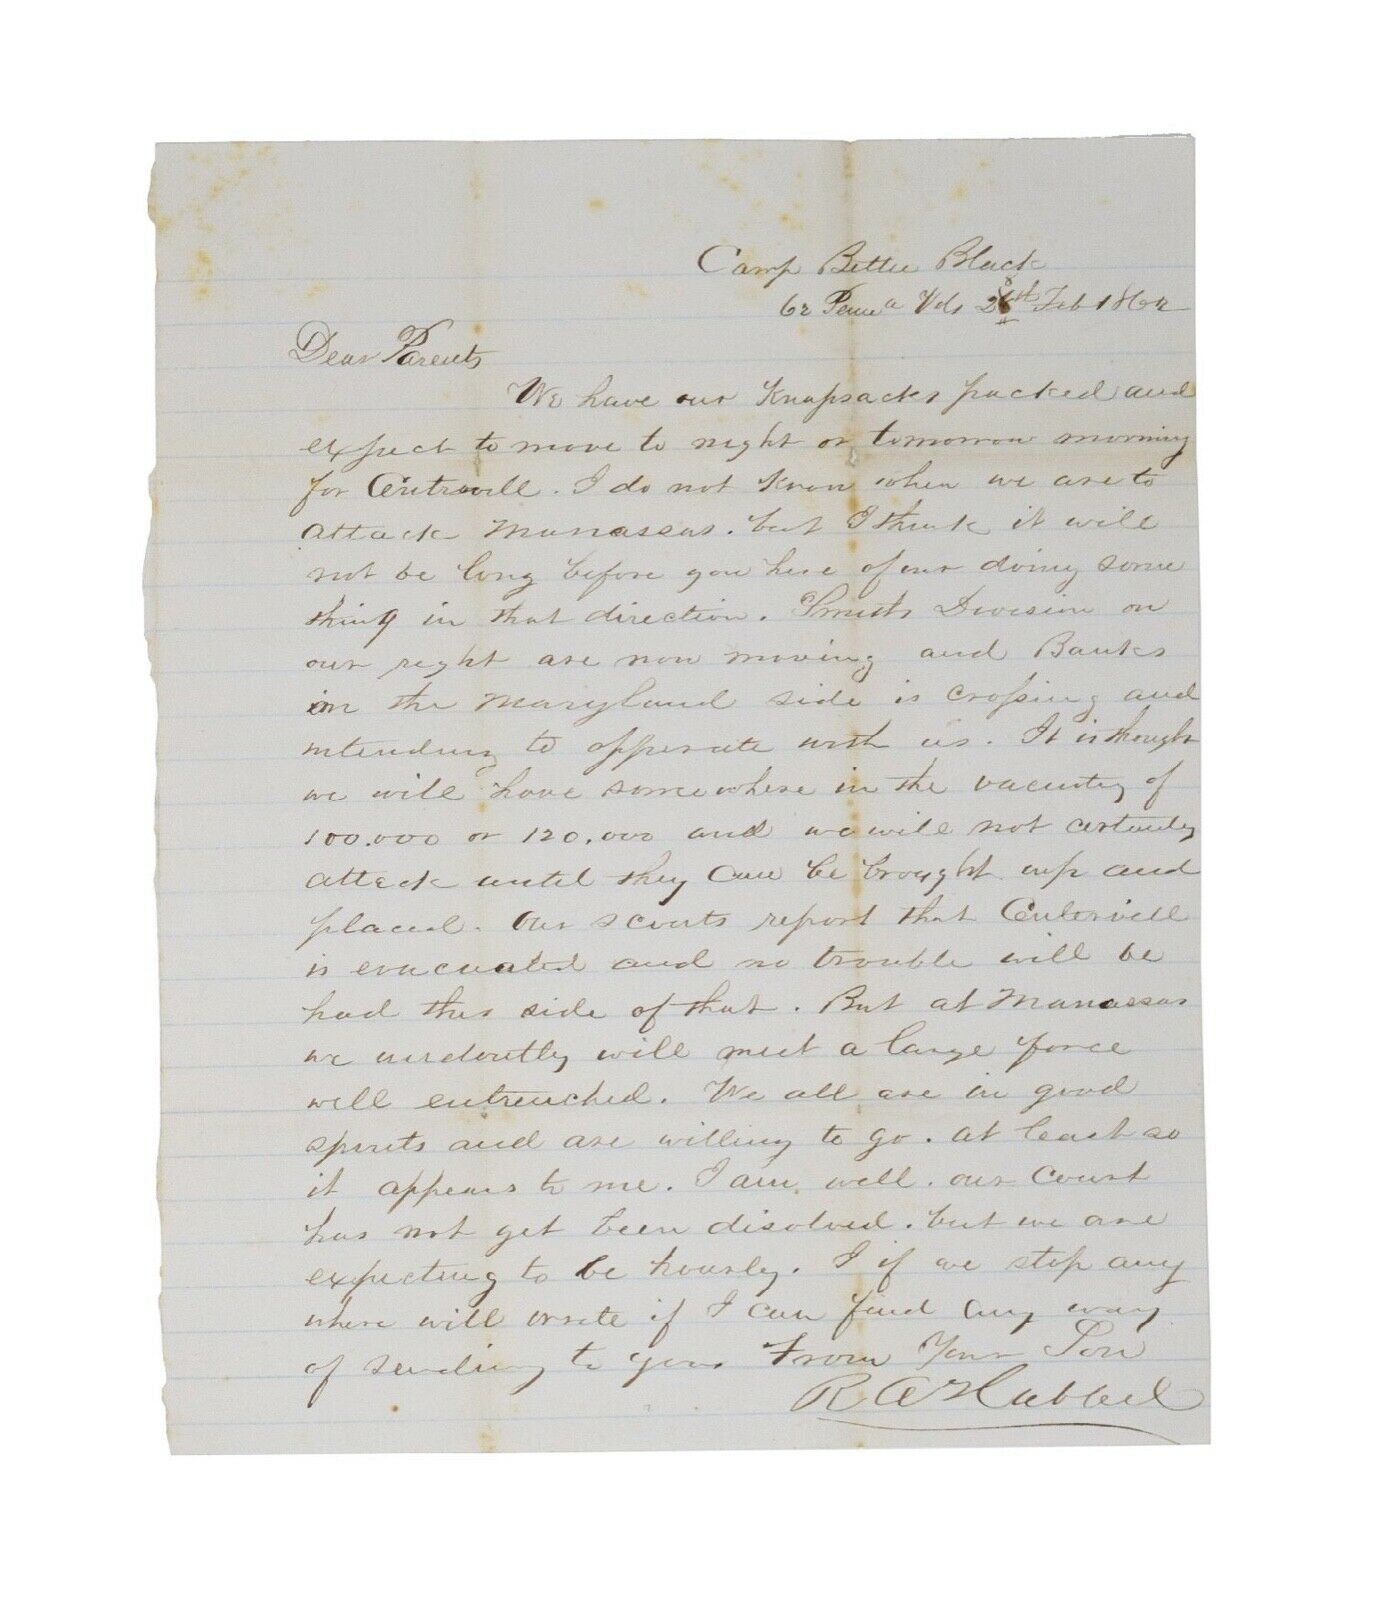 Camp Bettie Black
62 Penna Vols 28th Feb 1862
Dear Parents
We have our Knapsacks packed and
expect to move to night or tomorrow morning
for Centrvill. I do not Know when we are to
attack Manassas. but I think it will
not be long before you here of our doing some
thing in that direction. Smiths Division on
our right are now moving and Banks
on the Maryland side is crossing and
intending to opperate with us. It is thought
we will have somewhere in the vacinty of
100.000 or 120.000 and we will not certainly
attack until they can be brought up and
placed. Our scouts report that Centervill
is evacuated and no trouble will be
had this side of that. But at Manassas
we undoutly will meet a large force
well entrenched. We all are in good
spirits and are willing to go. at least so
it appears to me. I am well. our Court
has not yet been disolved. but we are
expecting to be hourly. I if we stop any
where will write if I can find any way
of sending to you From Your Son
R A Hubbell